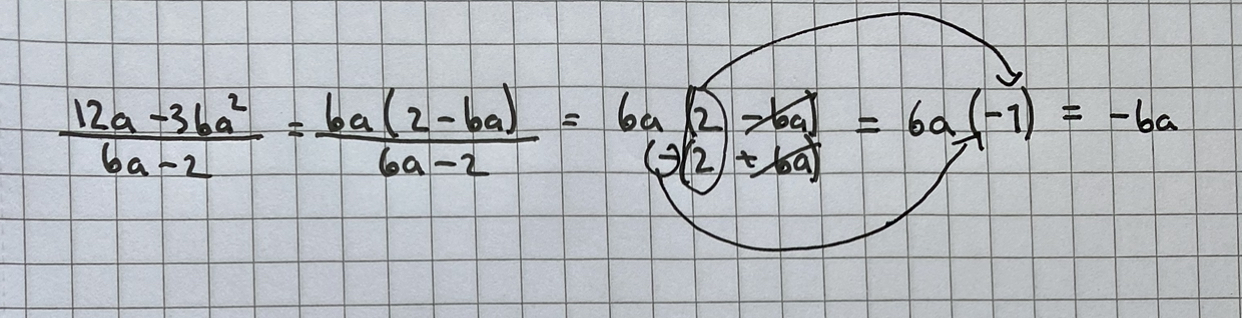 12a - 36a² / 6a - 2 = 6a(2 - 6a) / 6a - 2 = 6a (2 - 6a) / (-)(2 + 6a) = 6a (-1) = -6a